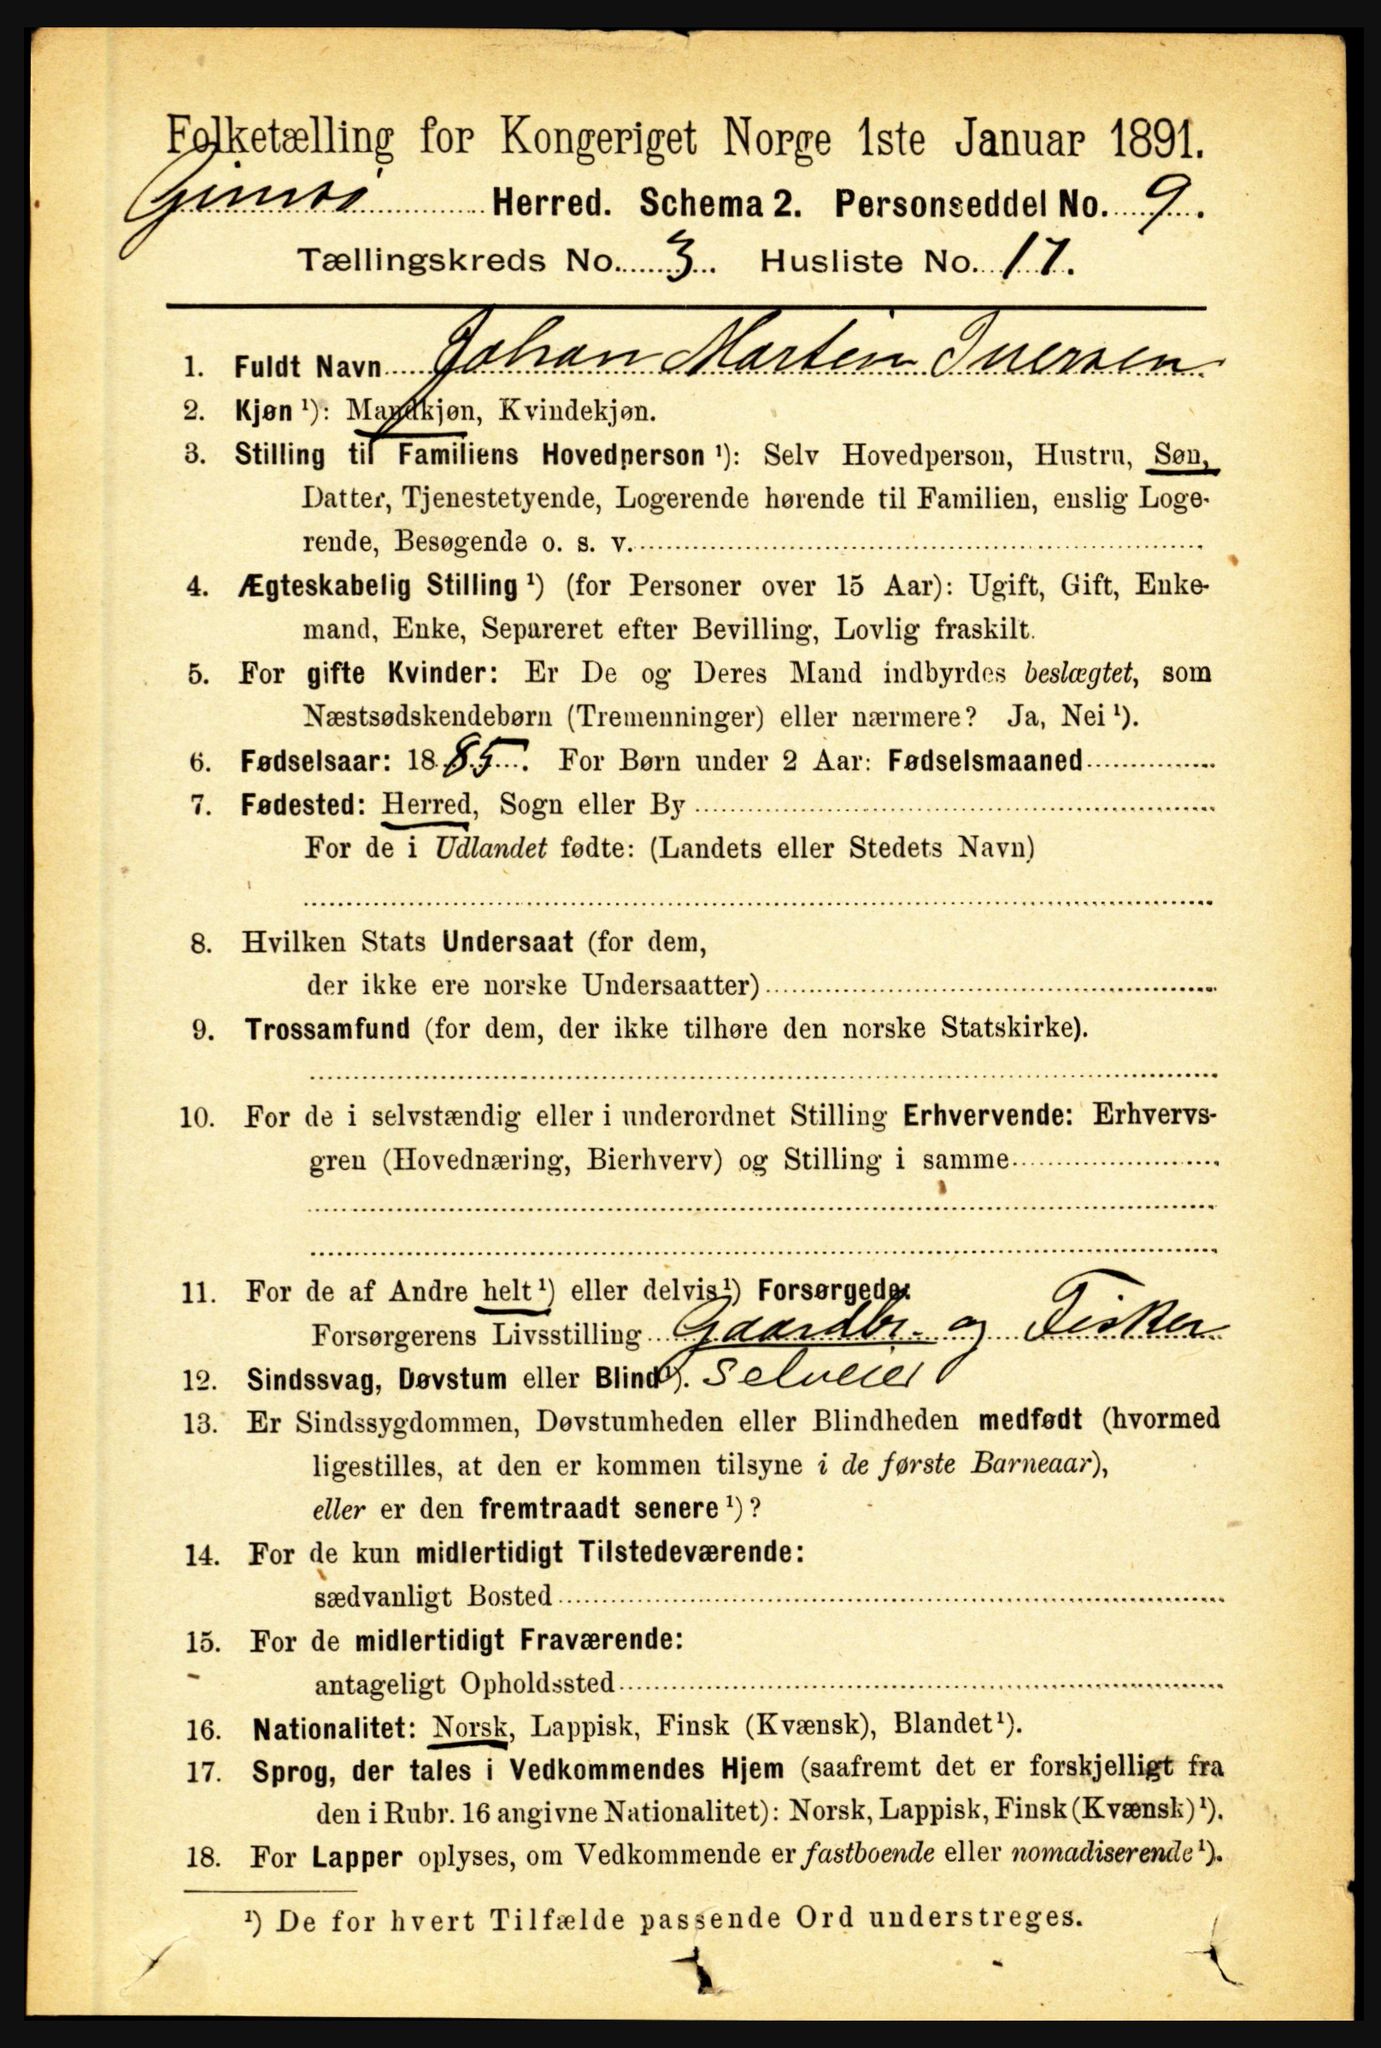 Folketælling for Kongeriget Norge 1ste Januar 1891.
Gimsö Herred. Schema 2. Personseddel No. 9.
Tællingskreds No. 3. Husliste No. 17.
1. Fuldt Navn Johan Martin Iversen
2. Kjøn ¹): Mandkjøn, Kvindekjøn.
3. Stilling til Familiens Hovedperson ¹): Selv Hovedperson, Hustru, Søn,
Datter, Tjenestetyende, Logerende hørende til Familien, enslig Loge-
rende, Besøgende o. s. v.
4. Ægteskabelig Stilling ¹) (for Personer over 15 Aar): Ugift, Gift, Enke-
mand, Enke, Separeret efter Bevilling, Lovlig fraskilt.
5. For gifte Kvinder: Er De og Deres Mand indbyrdes beslægtet, som
Næstsødskendebørn (Tremenninger) eller nærmere? Ja, Nei ¹).
6. Fødselsaar: 1885. For Børn under 2 Aar: Fødselsmaaned
7. Fødested: Herred, Sogn eller By
For de i Udlandet fødte: (Landets eller Stedets Navn)
8. Hvilken Stats Undersaat (for dem,
der ikke ere norske Undersaatter)
9. Trossamfund (for dem, der ikke tilhøre den norske Statskirke).
10. For de i selvstændig eller i underordnet Stilling Erhvervende: Erhvervs-
gren (Hovednæring, Bierhverv) og Stilling i samme
11. For de af Andre helt ¹) eller delvis ¹) Forsørgede:
Forsørgerens Livsstilling Gaardbr. og Fisker
12. Sindssvag, Døvstum eller Blind ¹). Selveier
13. Er Sindssygdommen, Døvstumheden eller Blindheden medfødt (hvormed
ligestilles, at den er kommen tilsyne i de første Barneaar),
eller er den fremtraadt senere ¹)?
14. For de kun midlertidigt Tilstedeværende:
sædvanligt Bosted
15. For de midlertidigt Fraværende:
antageligt Opholdssted
16. Nationalitet: Norsk, Lappisk, Finsk (Kvænsk), Blandet ¹).
17. Sprog, der tales i Vedkommendes Hjem (saafremt det er forskjelligt fra
den i Rubr. 16 angivne Nationalitet): Norsk, Lappisk, Finsk (Kvænsk) ¹).
18. For Lapper oplyses, om Vedkommende er fastboende eller nomadiserende ¹).
¹) De for hvert Tilfælde passende Ord understreges.